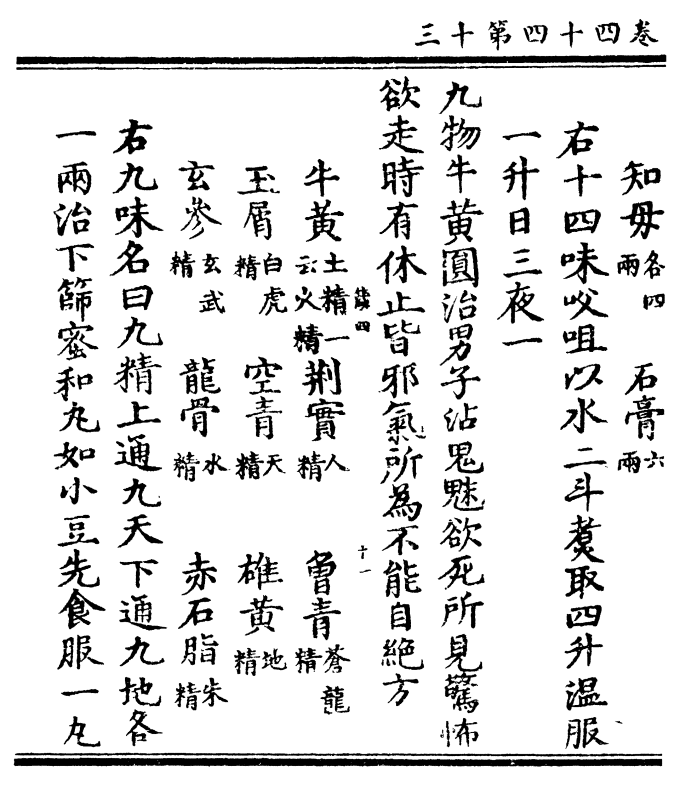 卷四十四第十三
知母各四兩　石膏六兩
右十四味㕮咀以水二斗煑取四升温服
一升日三夜一
九物牛黄圓治男子沾鬼魅欲死所見驚怖
欲走時有休止皆邪氣所為不能自絶方
續四　十一
牛黄土精一云火精　荆實人精　曾青蒼龍精
玉屑白虎精　空青天精　雄黄地精
玄參玄武精　龍骨水精　赤石脂朱精
右九味名曰九精上通九天下通九地各
一兩治下篩蜜和丸如小豆先食服一丸